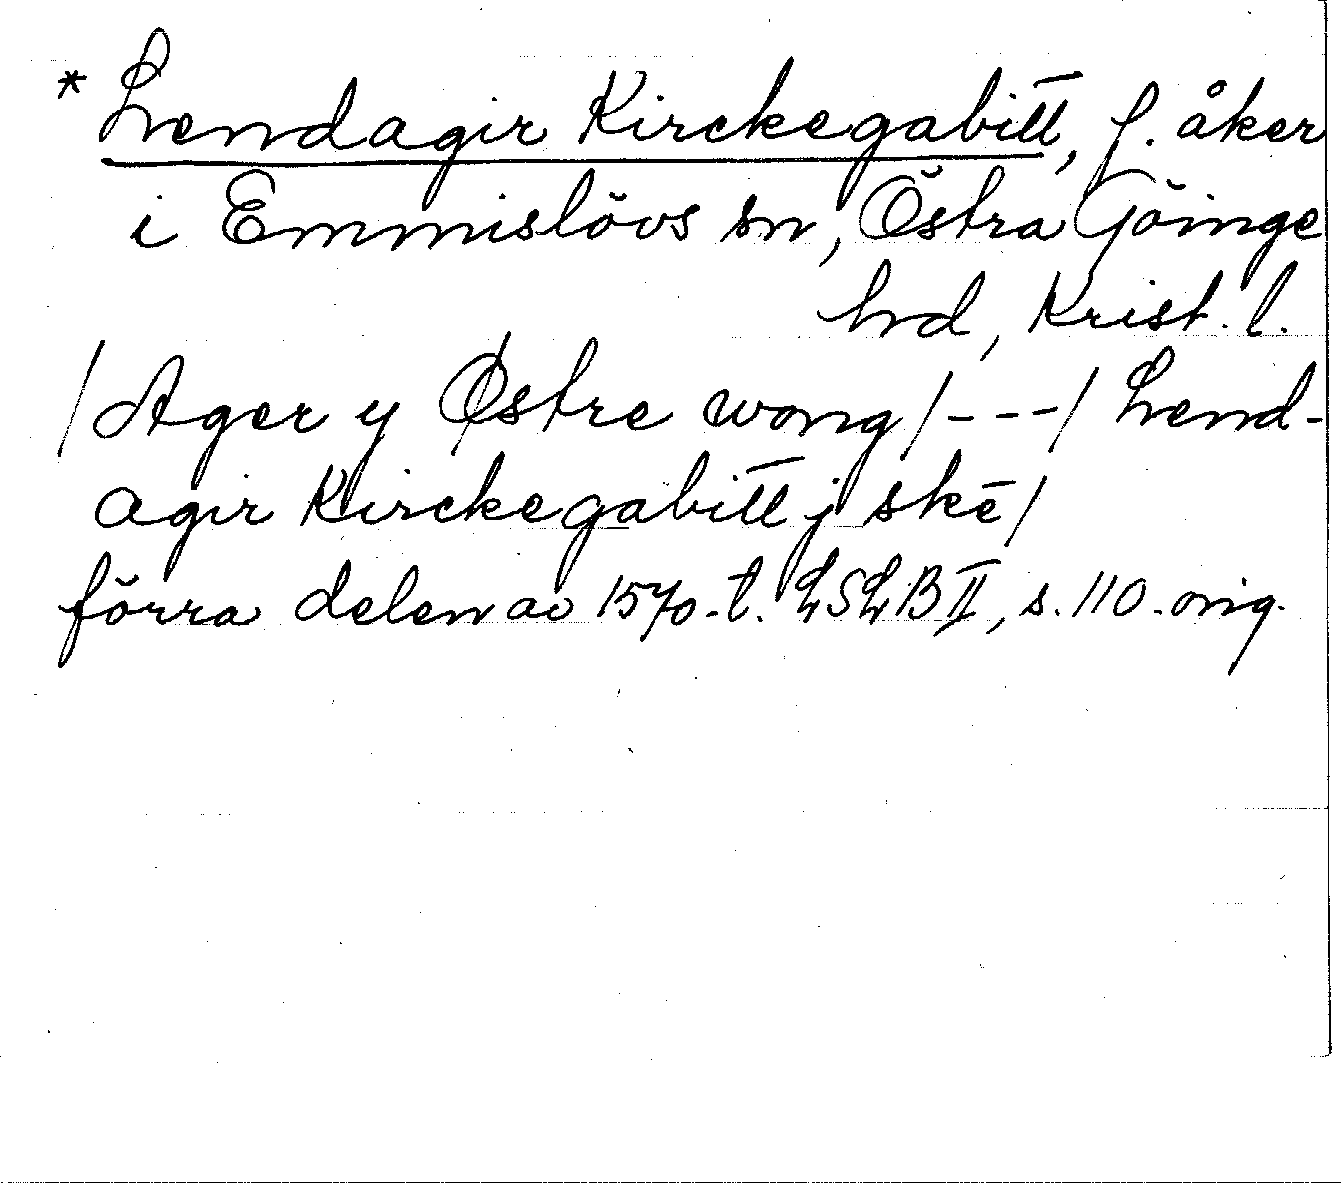 * Lendagir Kirckegabitt, f. åker
i Emmislövs sn, Östra Göinge
hd, Krist. l.
/Ager y Østre wong/---/ Lend-
agir Kirckegabitt j skē/
förra delen av 1570-t. LSLB II, s. 110. orig.